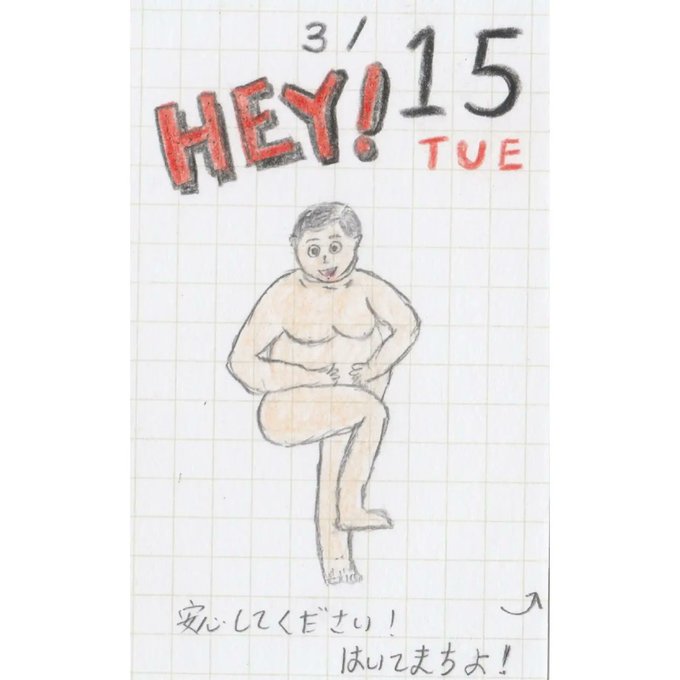 3/15
HEY!
TUE
安心してください!
はいてまちよ!